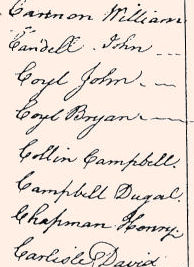 Cannon William
Candell John
Coyl John
Coyl Bryan
Collin Campbell.
Campbell Dugal.
Chapman Henry.
Carlisle David